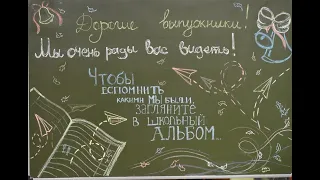 Дорогие выпускники!
Мы очень рады вас видеть!
Чтобы
вспомнить
какими мы были,
загляните
в школьный
альбом...